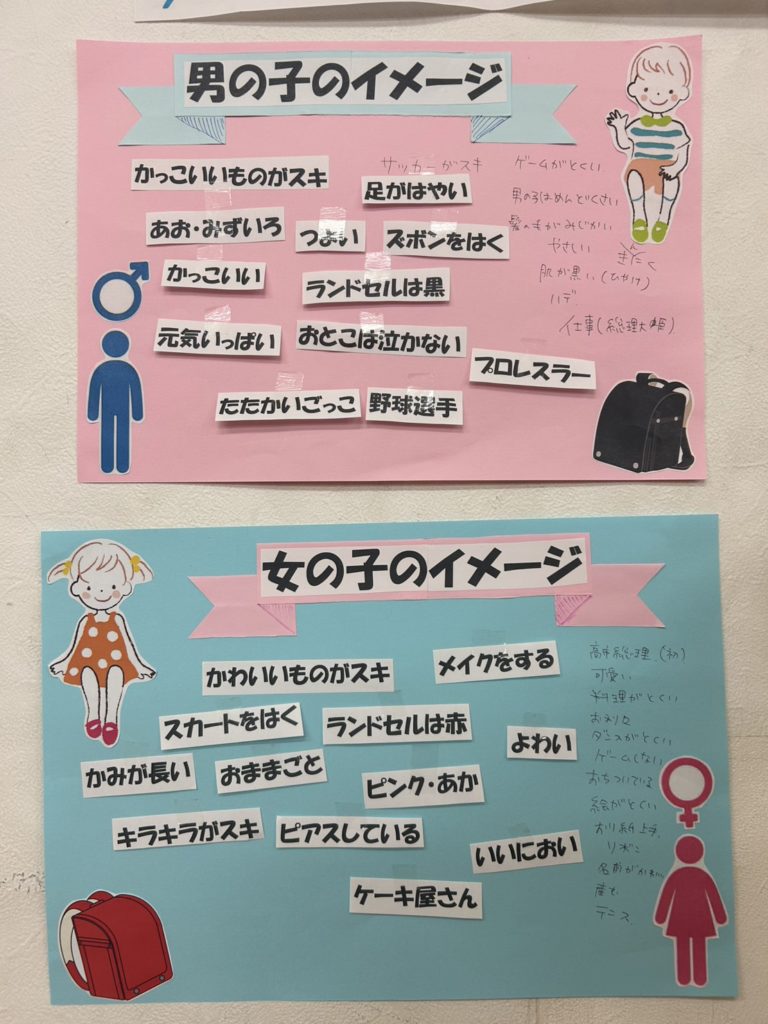 男の子のイメージ
かっこいいものがスキ
サッカーがスキ
ゲームがとくい
足がはやい
男の子はめんどくさい
あお・みずいろ
つよい
ズボンをはく
髪の毛がみじかい
やさしい
かっこいい
ランドセルは黒
肌が黒い(ひやけ)
ハデ
仕事(総理大臣)
元気いっぱい
おとこは泣かない
プロレスラー
たたかいごっこ
野球選手
女の子のイメージ
かわいいものがスキ
メイクをする
高市総理(初)
可愛い
料理がとくい
スカートをはく
ランドセルは赤
よわい
ダンスがとくい
ゲームしない
かみが長い
おままごと
ピンク・あか
おちついている
絵がとくい
キラキラがスキ
ピアスしている
いいにおい
おり紙上手
リボン
ケーキ屋さん
テニス